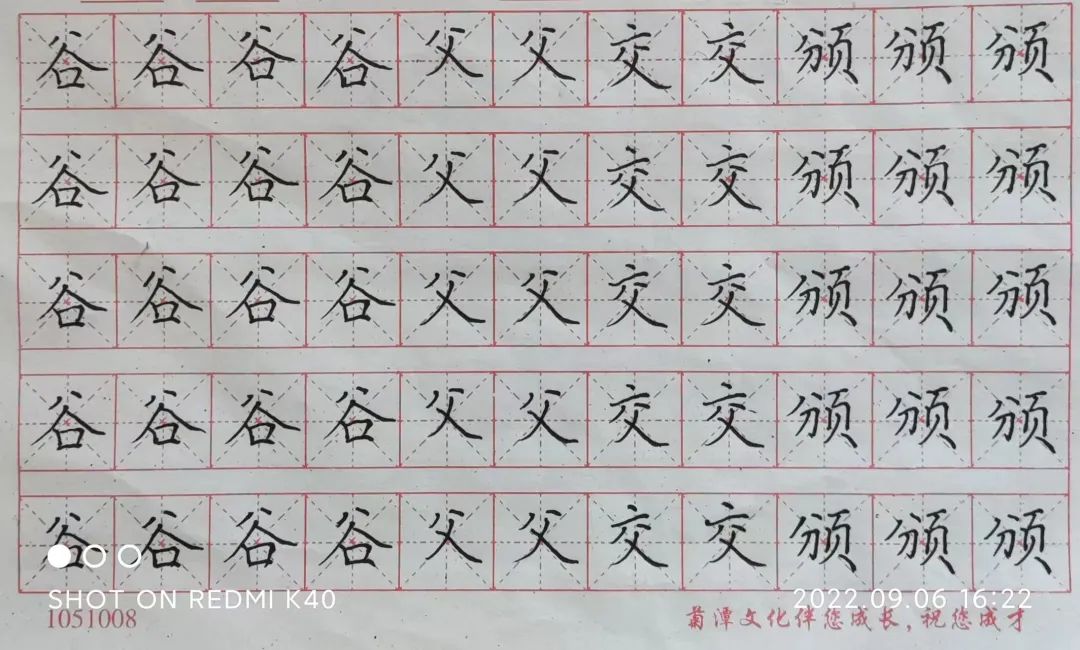 谷谷谷谷父父交交颁颁颁
谷谷谷谷父父交交颁颁颁
谷谷谷谷父父交交颁颁颁
谷谷谷谷父父交交颁颁颁
谷谷谷谷父父交交颁颁颁
SHOT ON REDMI K40 2022.09.06 16:22
1051008 菊潭文化伴您成长,祝您成才